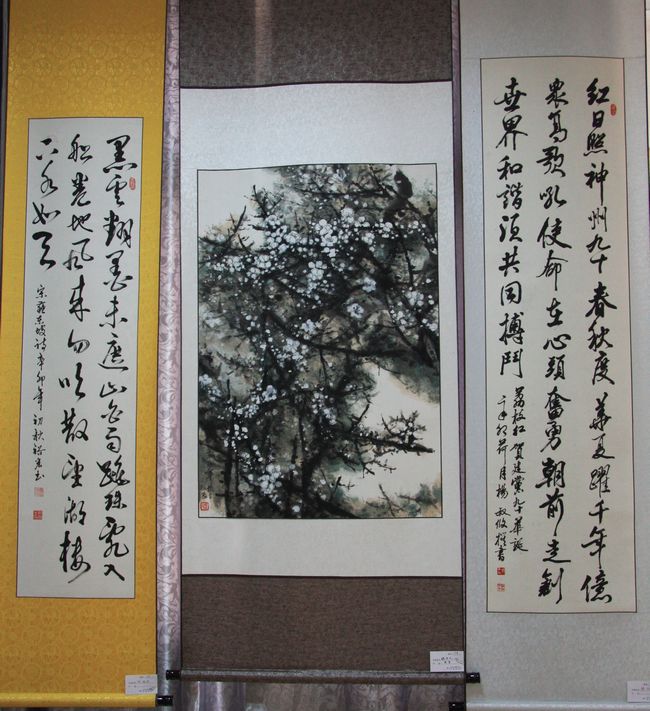 紅日照神州九十春秋度華夏躍千年億
眾高歌吼使命在心頭奮勇朝前走創
世界和諧須共同搏鬥
荔枝紅賀建黨九十華誕
辛卯荷月楊撰書
黑雲翻墨未遮山白雨跳珠亂入
船卷地風來勿吹散望湖樓
下水如天
宋蘇東坡詩辛卯年初秋裕宏書